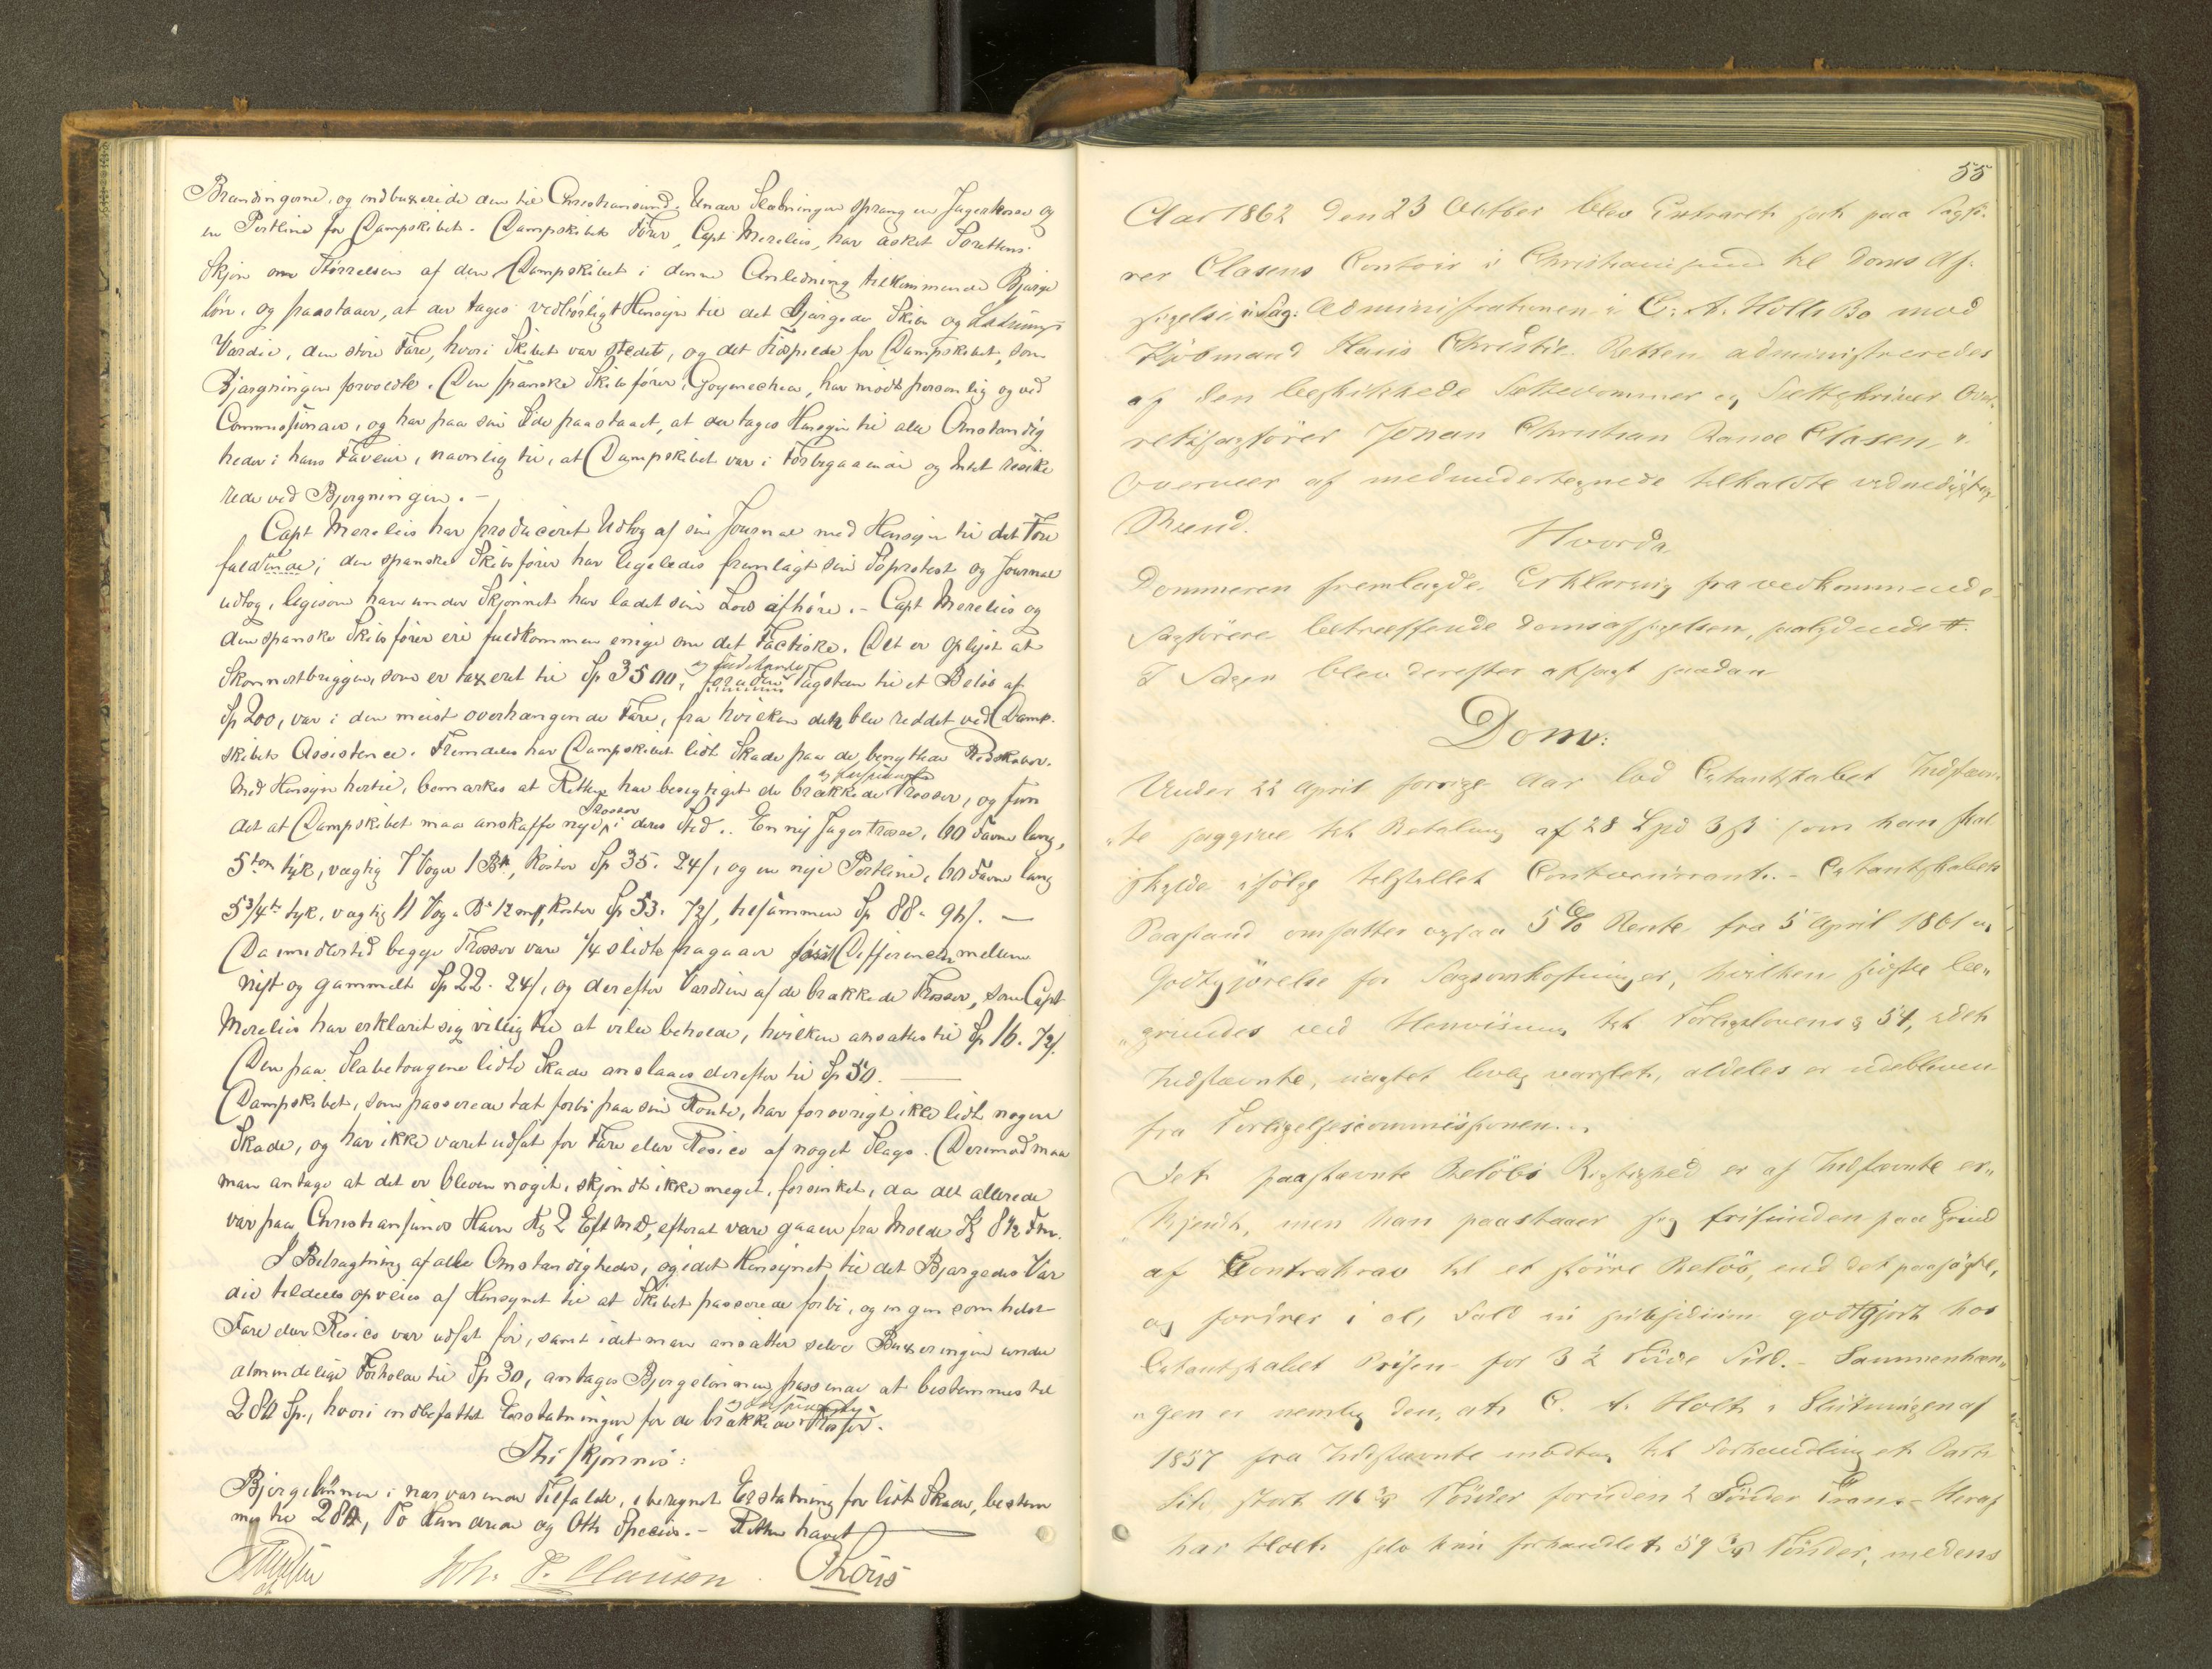 Brændingerne, og indbuxerede den til Christiansund. Under Slæbningen sprang en Jagertrosse og
en Pertline for Dampskibet. Dampskibets Fører, Capt Merelius, har æsket Sørettens
Skjøn om Størrelsen af den Dampskibet i denne Anledning tilkommende Bjærge
løn, og paastaaer, at der tages vedbørligt Hensyn til det Bjærgede Skibs og Ladnings
Værdie, den store Fare, hvori Skibet var stedet, og det Tidspilde for Dampskibet, som
Bjærgningen forvoldte. Den spanske Skibsfører, Goyenechea, har mødt personlig og ved
Commissionair, og har paa sin Side paastaaet, at der tages Hensyn til alle Omstændig
heder i hans Faveur, navnlig til, at Dampskibet var i Forbigaaende og Intet resike
rede ved Bjergningen. –
Capt Merelius har produceret Udtog af sin Journal med Hensyn til det Fore
faldende; den spanske Skibsfører har ligeledes fremlagt sin Søprotest og Journal
udtog, ligesom han under Skjønnet har ladet sin Lods afhøre. – Capt Merelius og
den spanske Skibsfører ere fuldkommen enige om det Factiske. Det er oplyst at
Skonnertbriggen, som er taxeret til Sp 3500, foruden Tagsten til et Beløb af
Sp 200, var i den meest overhængende Fare, fra hvilken det blev reddet ved Damp-
skibets Assistence. Fremdeles har Dampskibet lidt Skade paa de benyttede Redskaber.
Med Hensyn hertil, bemærkes at Retten har besigtiget de brækkede Trosser, og fun
det at Dampskibet maa anskaffe nye Trosser i deres Sted. En ny Jagertrosse, 60 Favne lang,
5 tom tyk, vægtig 7 Voger 1 Bp, koster Sp 35. 24/, og en nye Pertline, 60 Favne lang
5 3/4 t. tyk, vægtig 11 Vog. B. 12 m/, koster Sp 53. 72/, tilsammen Sp 88. 96/. —
Da imidlertid begge Trosser vare 1/4 slidte fragaaer først Differencen mellem
nyt og gammelt Sp 22. 24/, og derefter Værdien af de brækkede Trosser, som Capt
Merelius har erklæret sig villig til at ville beholde, hvilken ansættes til Sp 16. 72/.
Den paa Slæbetougene lidte Skade anslaaes derefter til Sp 50. —
Dampskibet, som passerede tæt forbi paa sin Route, har forøvrigt ikke lidt nogen
Skade, og har ikke været udsat for Fare eller Resico af noget Slags. Derimod maa
man antage at det er bleven noget, skjøndt ikke meget, forsinket, da det allerede
var paa Christiansunds Havn Kl 2 Eft Md, efterat være gaaen fra Molde Kl 8 1/2 Fm.
I Betragtning af alle Omstændigheder, og idet Hensynet til det Bjærgedes Vær
die tildeels opveies af Hensynet til at Skibet passerede forbi, og ingensomhelst
Fare eller Resico var udsat for, samt idet man ansætter selve Buxeringen under
almindelige Forholde til Sp 30, antages Bjergelønnen passende at bestemmes til
280 Sp., hvori indbefattet Erstatningen for de brækkede Trosser.
Thi skjønnes:
Bjergelønnen i nærværende Tilfælde, iberegnet Erstatning for lidt Skade, bestem
mes til 280, To Hundrede og Otti Specier. – Retten hævet
Joh. P. Clausen
55
Aar 1862 den 23 Oktober blev Extraret sat paa Sagfø-
rer Clasens Contoir i Christiansund til Doms Af-
sigelse i Sag: Administrationen i C. A. Holts Bo mod
Kjøbmand Hans Christie. Retten administreredes
af den beskikkede Sættedommer og Sætteskriver Over-
retssagfører Johan Christian Ranoe Clasen, i
Overvær af medundertegnede tilkaldte vidnedygtige
Mænd.
Hvorda
Dommeren fremlagde Erklæring fra vedkommende
Sagførere betræffende Domsafsigelsen, saalydende #.
I Sagen blev derefter afsagt saadan
Dom:
Under 22 April forrige Aar lod Citantskabet Indstævn-
te sagsøge til Betaling af 28 Spd 3 ß som han skal
skylde ifølge tilstillet Contocourant. – Citantskabets
Paastand omfatter ogsaa 5 % Rente fra 5 April 1861 og
Godtgjørelse for Sagsomkostninger, hvilken sidste be-
grundes ved Henviisning til Forligslovens § 54, idet
Indstævnte, uagtet lovlig varslet, aldeles er udebleven
fra Forligelsescommissionen.
Det paastævnte Beløbs Rigtighed er af Indstævnte er-
kjendt, men han paastaaer sig frifunden paa Grund
af Contrakrav til et større Beløb, end det paasøgte,
og fordrer i al Fald in subsidium godtgjort hos
Citantskabet Prisen for 3 1/2 Tønde Sild. – Sammenhæn-
gen er nemlig den, at C. A. Holt i Slutningen af
1857 fra Indstævnte modtog til Forhandling et Parti
Sild stort 116 3/4 Tønder foruden 2 Tønder Tran. – Heraf
har Holt selv kun forhandlet 59 3/4 Tønder, medens